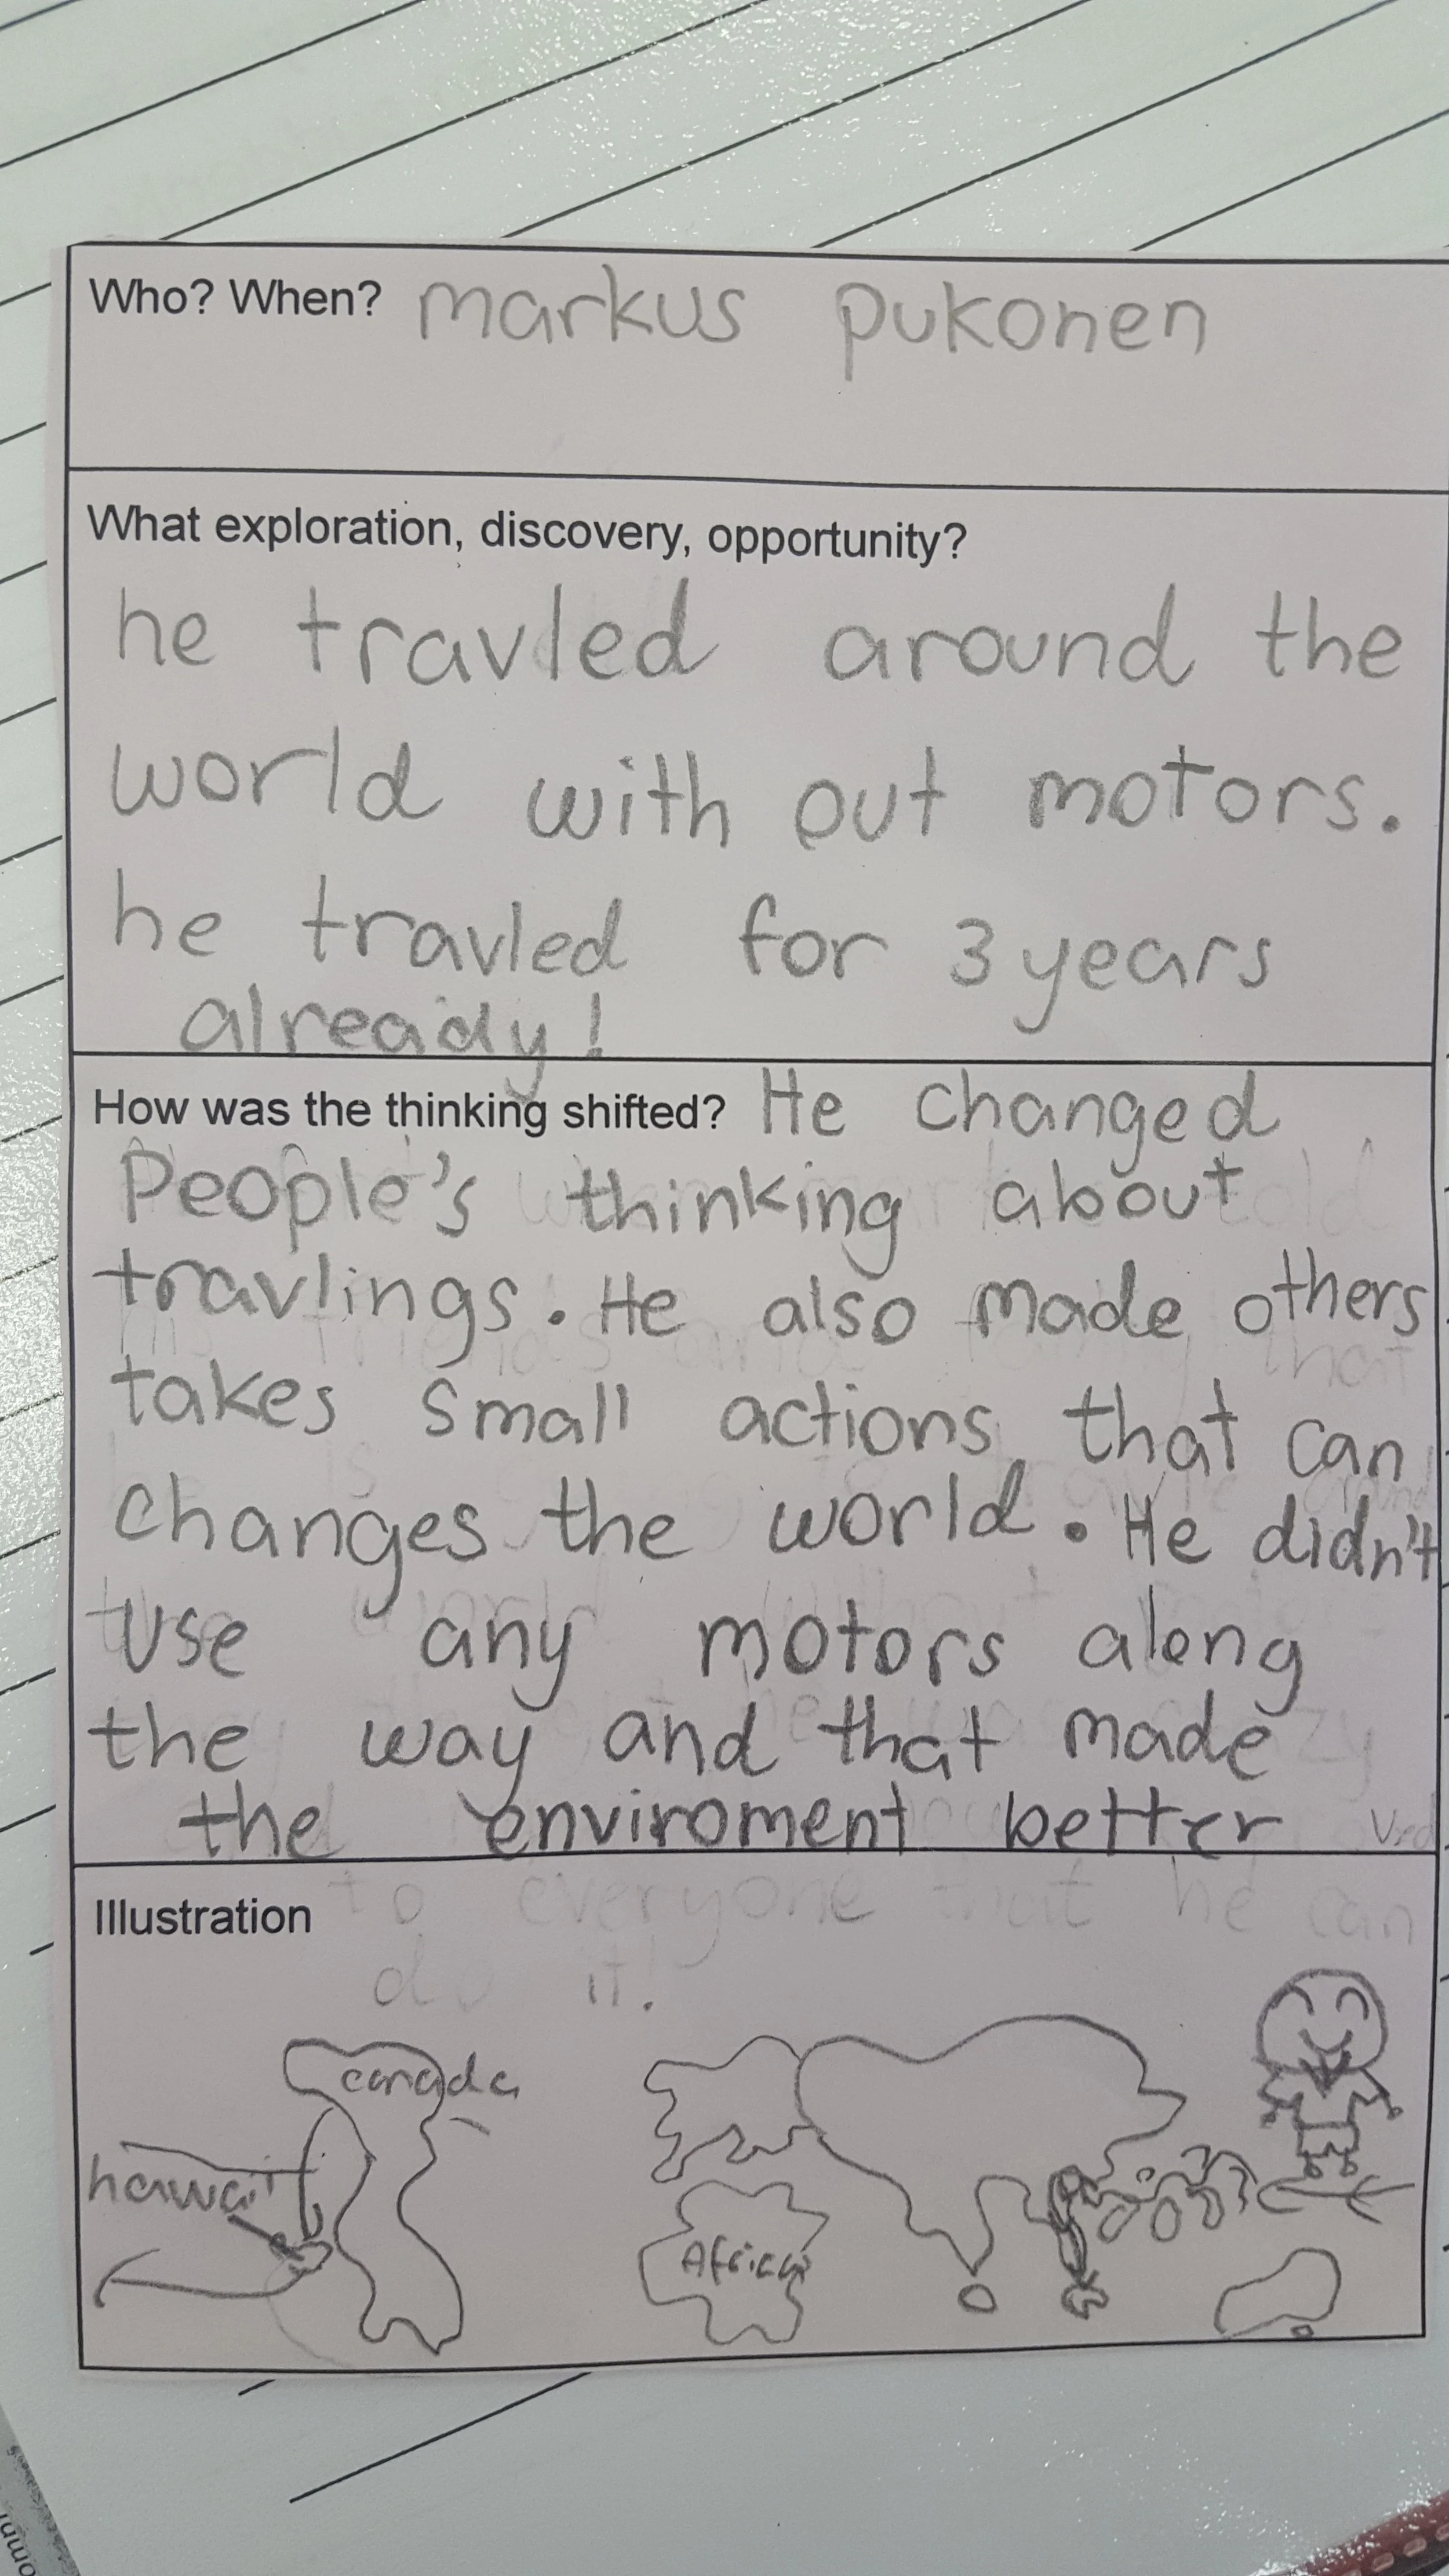 Who? When? markus pukonen
What exploration, discovery, opportunity?
he travled around the
world with out motors.
he travled for 3 years
already!
How was the thinking shifted? He changed
People's thinking about
travlings. He also made others
takes small actions that can
changes the world. He didn't
use any motors along
the way and that made
the enviroment better
Illustration
to everyone that he can
do it!
canada
hawaii
Africa